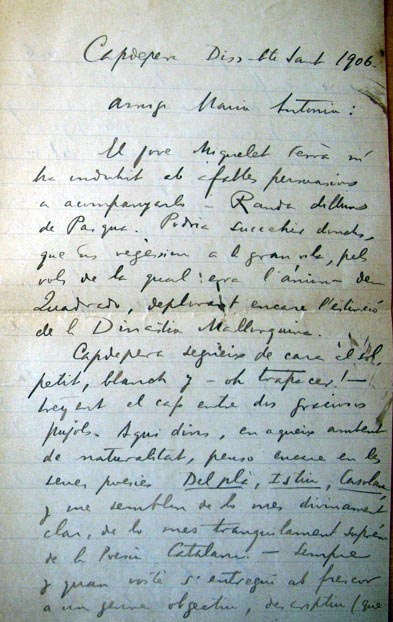 Capdepera Diss-bte Sant 1906.
Amiga Maria Antonia:
El jove Miquelet Ferrà m'
ha induhit ab afables persuasions
a acompanyarlo a Randa dilluns
de Pasqua. Podria succehir donchs,
que ens vegessim a la gran vila, pels
vols de la qual erra l'ànima den
Quadrado, deplorant encare l'extinció
de la Dinastia Mallorquina.
Capdepera segueix de cara al sol,
petit, blanch y - oh trapacer! -
treyent el cap entre dos graciosos
pujols. Aquí dins, en aqueix ambent
de naturalitat, penso encare en les
seves poesies Del plà, Istiu,
y me semblen de lo mes divinament
clar, de lo mes tranquilament suprem
de la Poesia Catalana - sempre
y quan vostè s'entregui ab frescor
a un genre objectiu, descriptiu (que